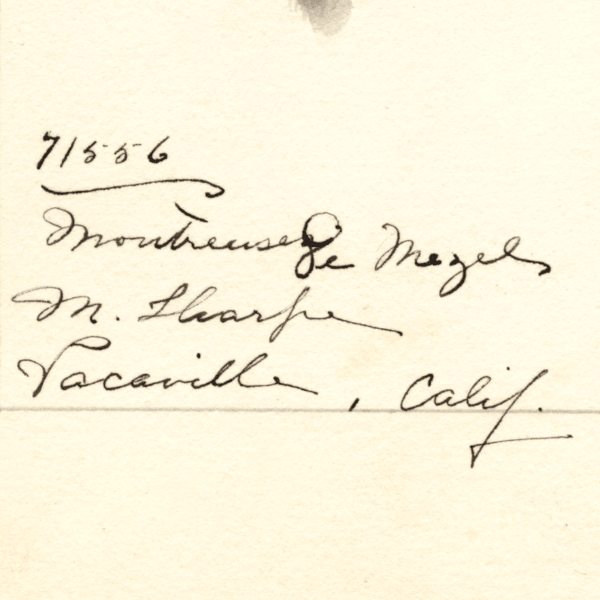 71556
Montreuse de Mezel
M. Sharpe
Vacaville, Calif.